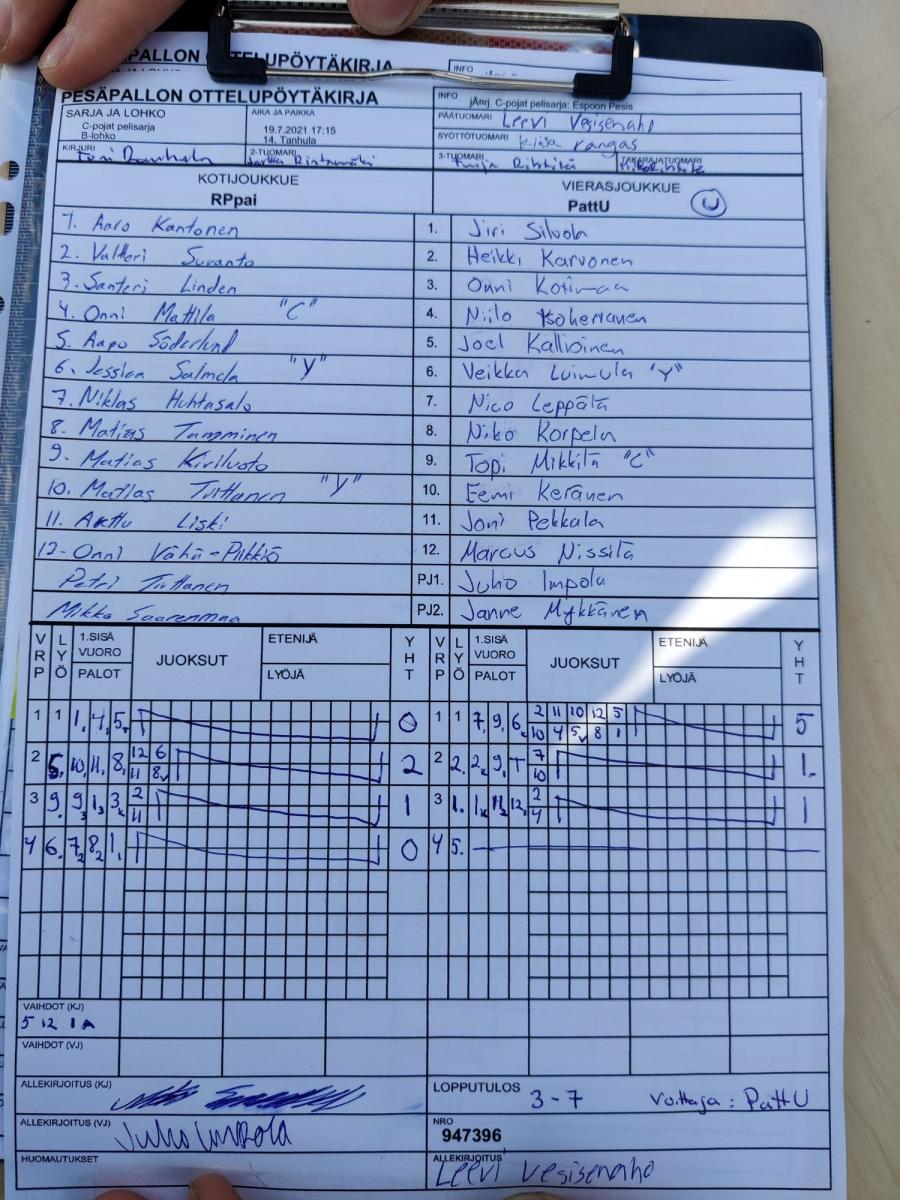 PALLON OTTELUPÖYTÄKIRJA
INFO
PESÄPALLON OTTELUPÖYTÄKIRJA
INFO jÄrrj. C-pojat pelisarja: Espoon Pesis
SARJA JA LOHKO
C-pojat pelisarja
B-lohko
AIKA JA PAIKKA
19.7.2021 17:15
14, Tanhula
PÄÄTUOMARI Leevi Vesisenaho
SYÖTTÖTUOMARI rangas
KIRJURI
2-TUOMARI
3-TUOMARI
TAKARAJATUOMARI
KOTIJOUKKUE
RPpai
VIERASJOUKKUE
PattU
1. Aaro Kantonen 1. Jiri Silvola
2. Valtteri Suvanto 2. Heikki Karvonen
3. Santeri Linden 3. Onni Kotimaa
4. Onni Mattila "C" 4. Niilo Isoherranen
5. Aapo Söderlund 5. Joel Kallioinen
6. Jessica Salmela "Y" 6. Veikka Luimula "Y"
7. Niklas Huhtasalo 7. Nico Leppälä
8. Matias Tamminen 8. Niko Korpela
9. Matias Kiviluoto 9. Topi Mikkilä "C"
10. Matias Tuittanen "Y" 10. Eemi Keränen
11. Arttu Liski 11. Joni Pekkala
12. Onni Vähä-Piikkiö 12. Marcus Nissilä
Petri Tuittanen PJ1. Juho Impola
Mikko Saarenmaa PJ2. Janne Mykkänen
VRP LYÖ 1.SISÄ VUORO PALOT JUOKSUT ETENIJÄ LYÖJÄ YHT VRP LYÖ 1.SISÄ VUORO PALOT JUOKSUT ETENIJÄ LYÖJÄ YHT
1 1 1, 4, 5. 0 1 1 7, 9, 6 2 11 10 12 5 5
10 4 5 8 1
2 5. 10, 11, 8, 12 6 2 2 2. 2 9, T 7 1.
11 8 10
3 9. 9 1, 3 2 1 3 1. 1 11 12 2 1
11 4
4 6. 7 8 1, 0 4 5.
VAIHDOT (KJ)
5 12 1A
VAIHDOT (VJ)
ALLEKIRJOITUS (KJ)
LOPPUTULOS 3-7 Voittaja: PattU
ALLEKIRJOITUS (VJ) Juho Impola
NRO
947396
HUOMAUTUKSET
ALLEKIRJOITUS
Leevi Vesisenaho